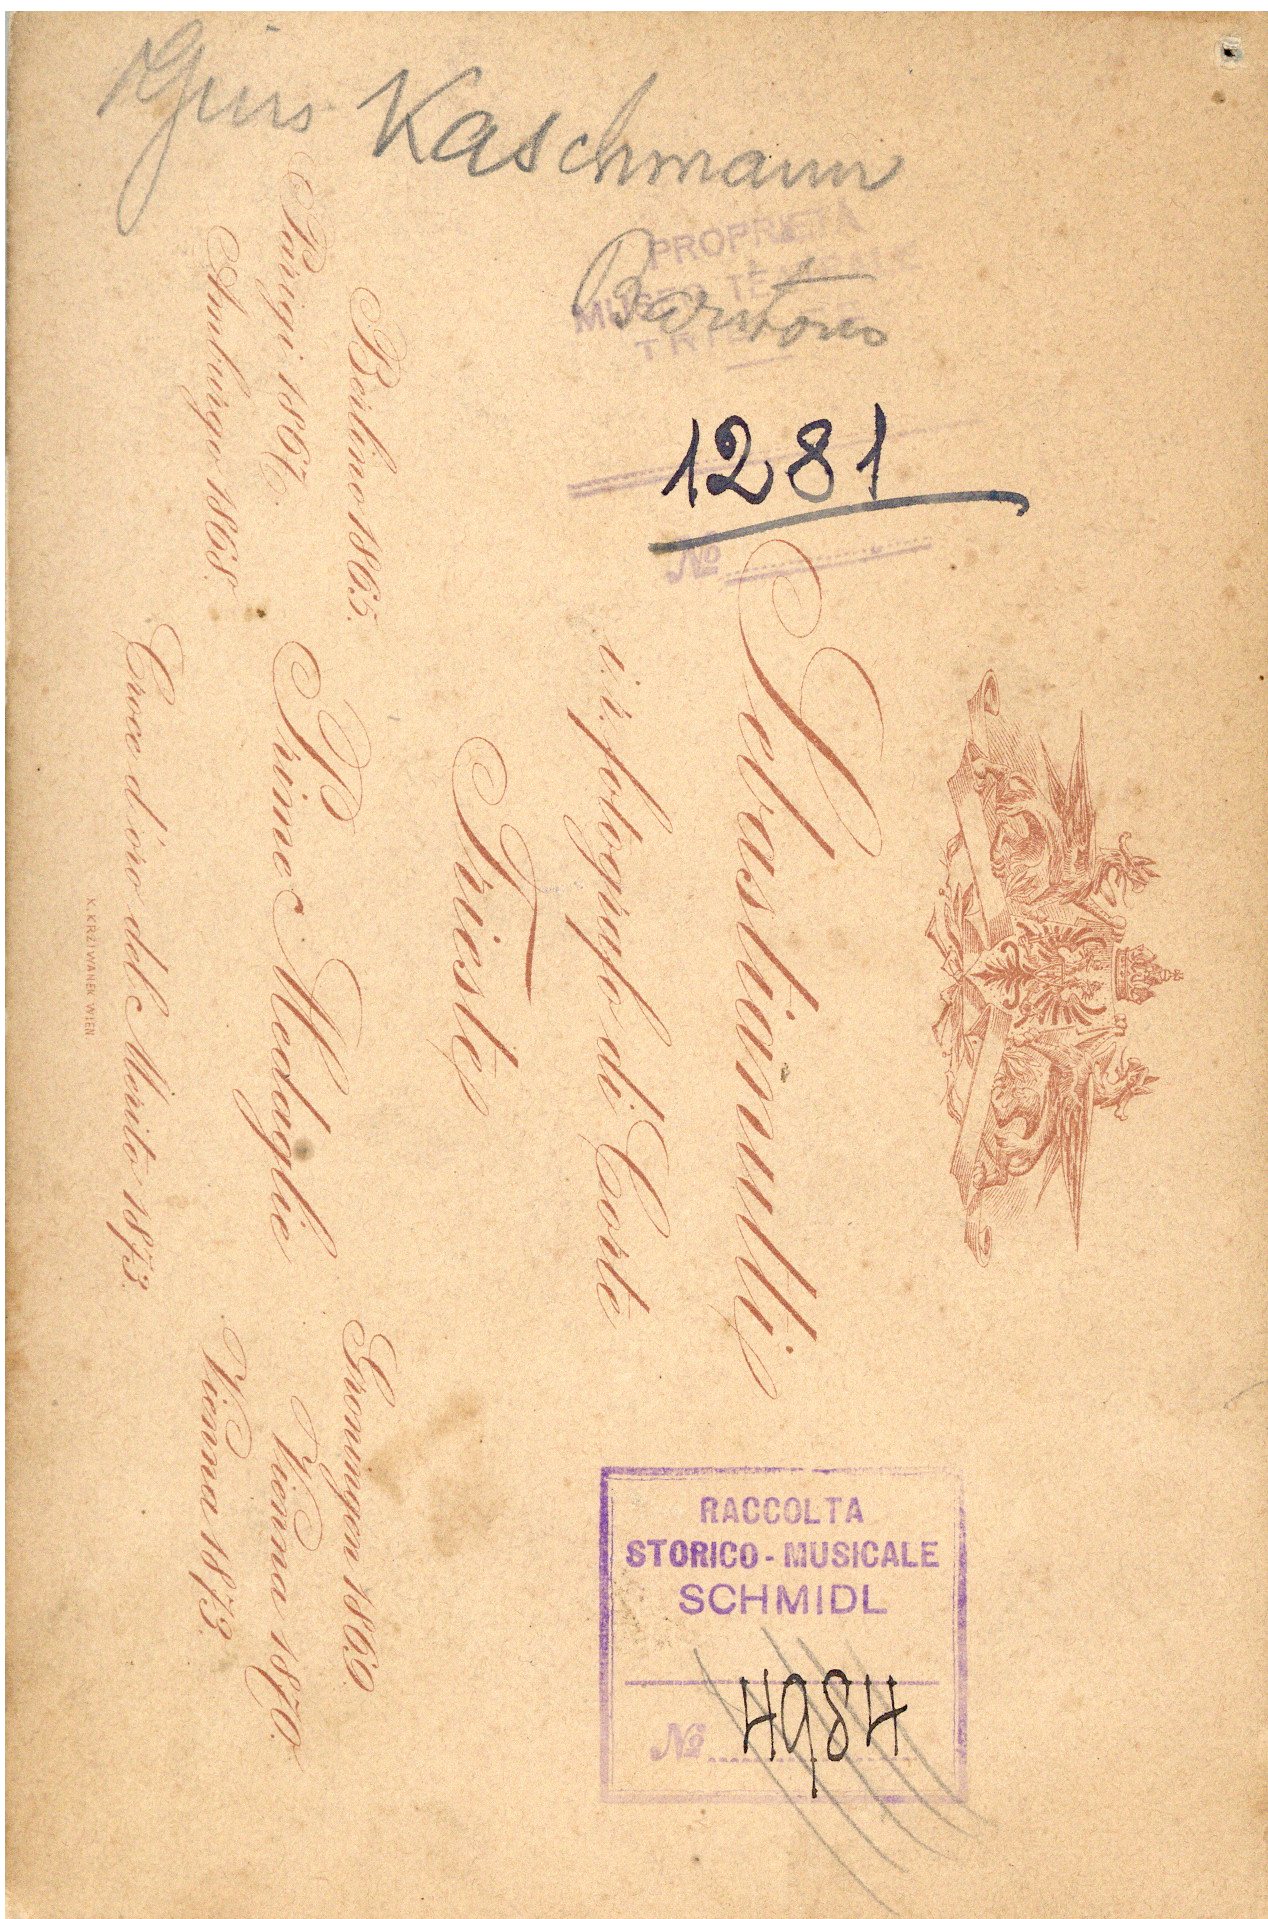 Gius Kaschmann
Baritono
PROPRIETÀ
MUSEO TEATRALE
TRIESTE
1281
No
Sebastianutti
i. r. fotografo di Corte
Trieste
Berlino 1865.
Parigi 1867.
Amburgo 1868.
Prime Medaglie
Groningen 1869.
Vienna 1870.
Vienna 1873.
Croce d'oro del Merito 1873.
K. KRZIWANEK WIEN
RACCOLTA
STORICO-MUSICALE
SCHMIDL
No 4984